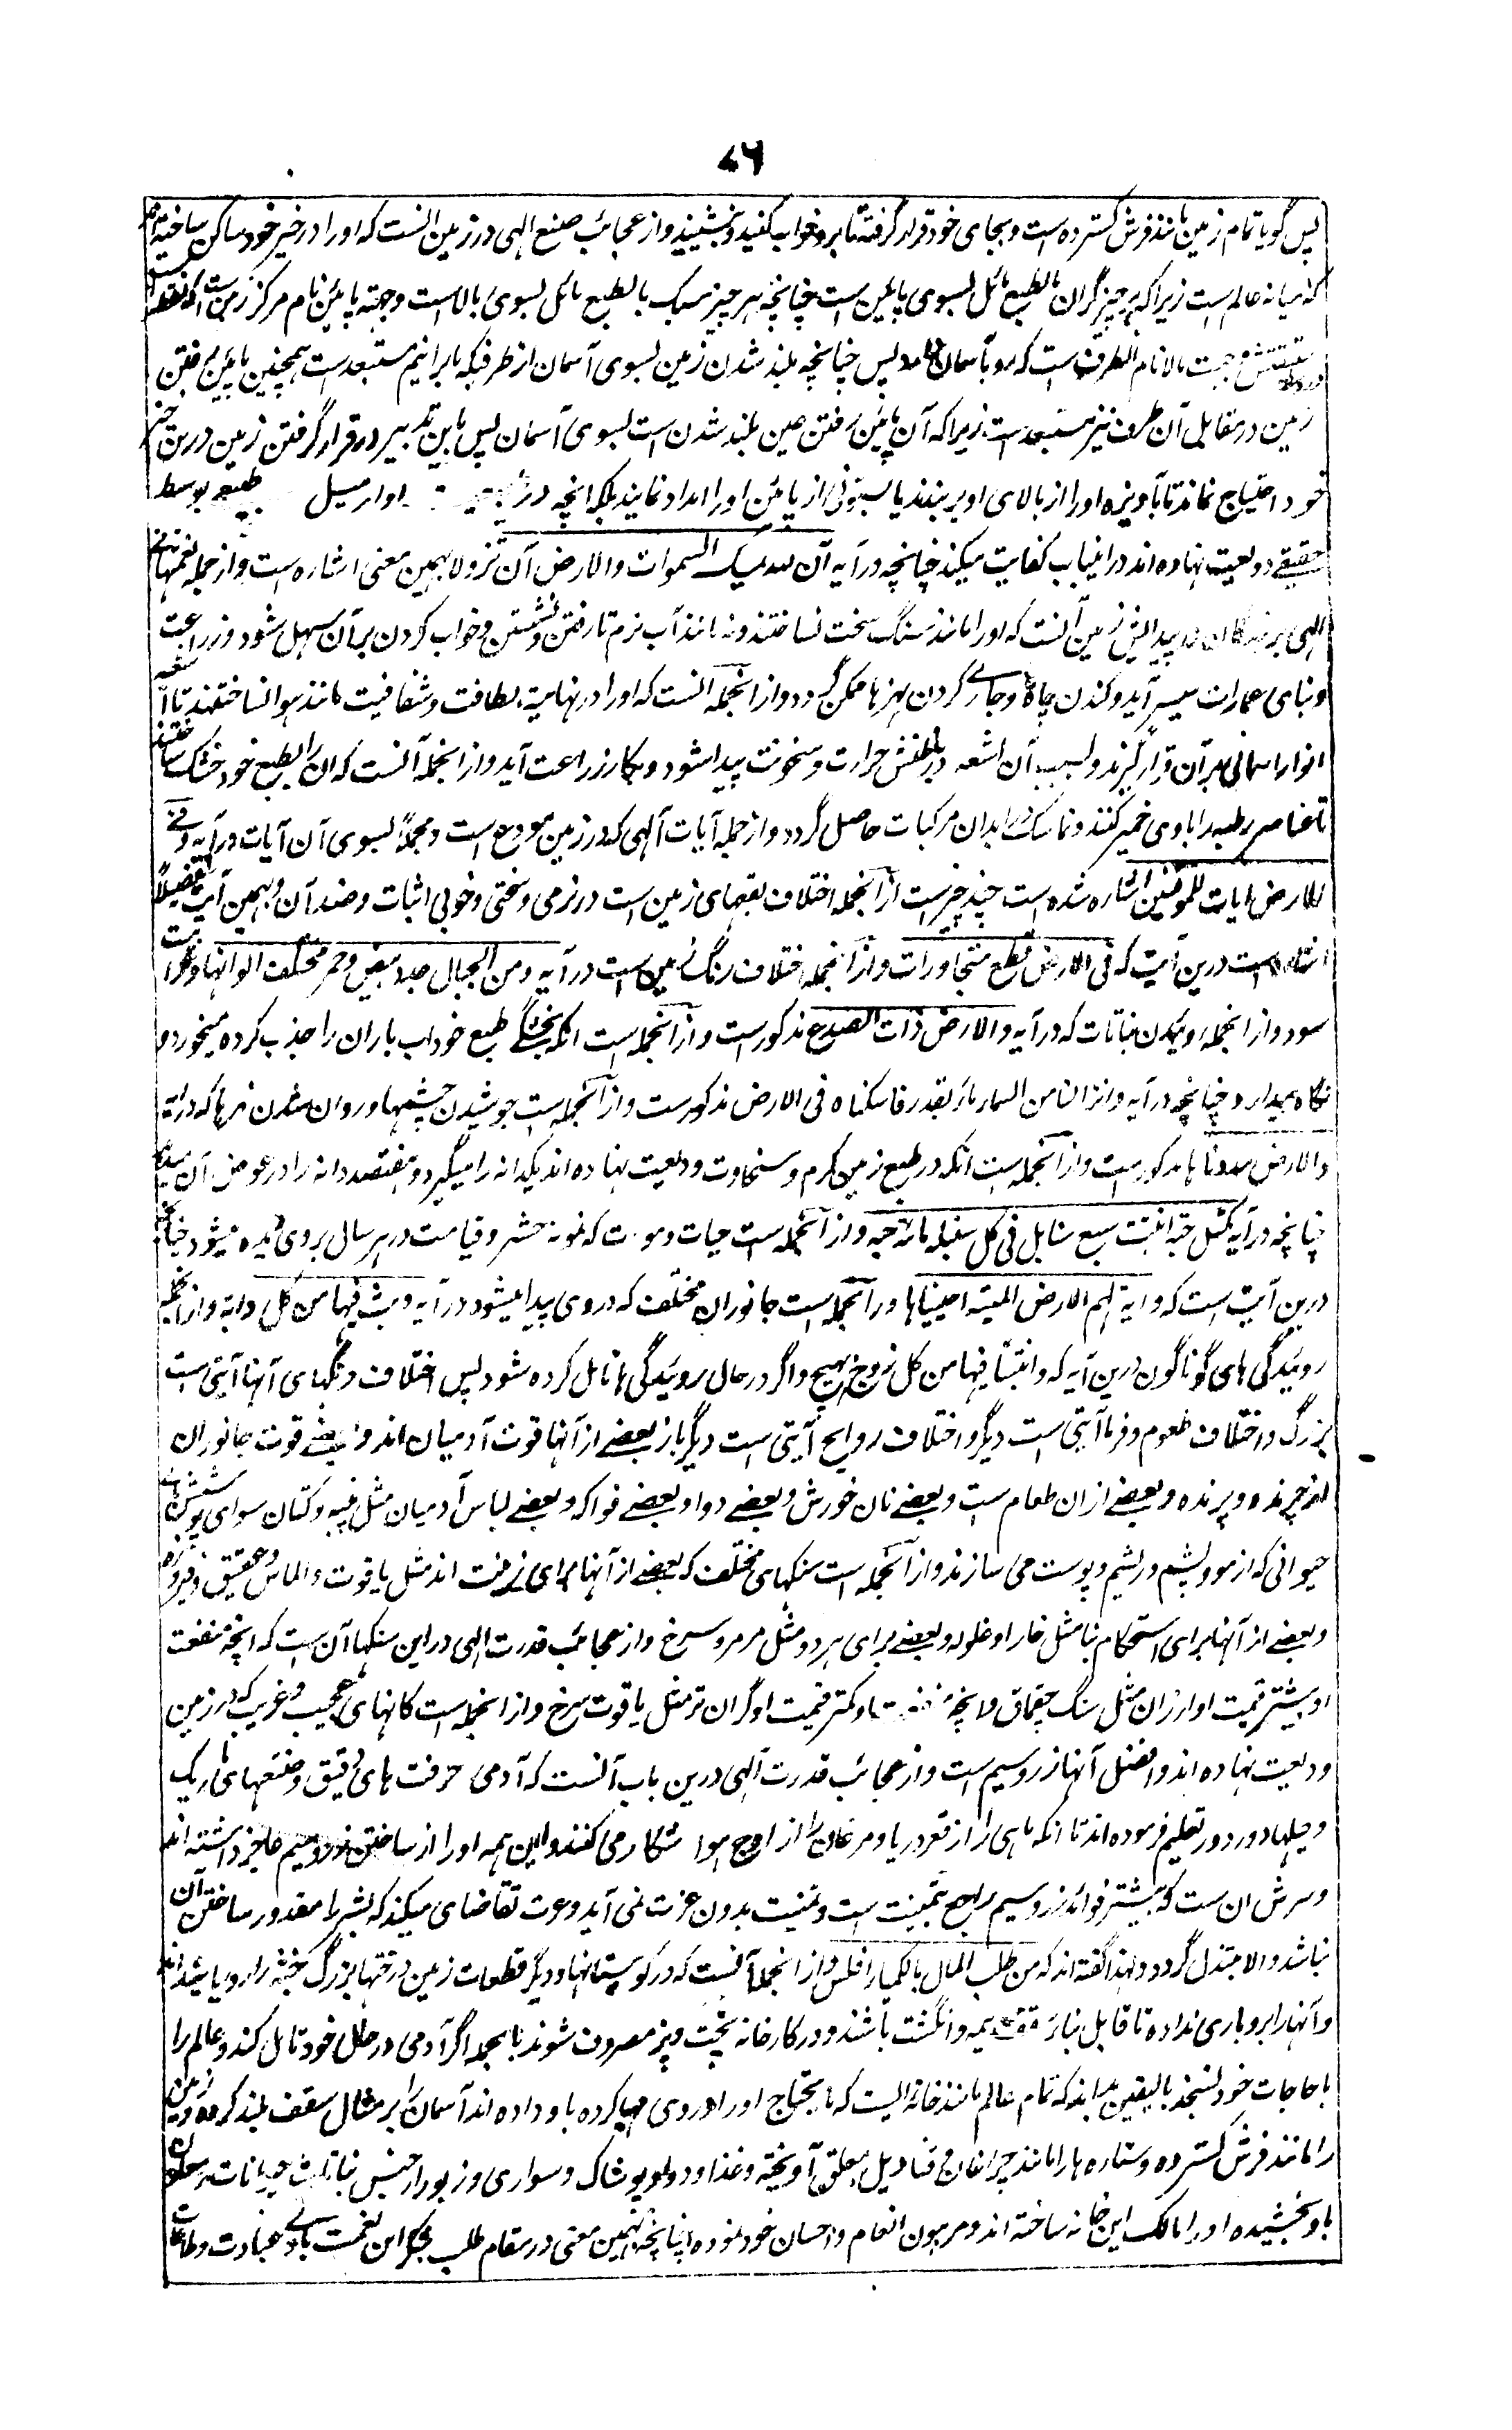 ۷۶
پس گویا تمام زمین مانند فرش گسترده است و بجای خود قرار گرفته تا برو خواب کنید و بنشینید و از عجائب صنع الهی در زمین آنست که او را در حیز خود ساکن ساخته
که میانه عالم است زیرا که هر چیز گران بالطبع مائل بسوی پایین است چنانچه هر چیز سبک بالطبع مائل بسوی بالاست و جهته پایئن نام مرکز زمین است
و جهت بالا نام آنطرف است که رو بآسمان دارد پس چنانچه بلند شدن زمین بسوی آسمان از طرفیکه ما برانیم مستبعد است همچنین پایین رفتن
زمین در مقابل آن طرف نیز مستبعد است زیرا که آن پایئن رفتن عین بلند شدن است بسوی آسمان پس باین تدبیر در قرار گرفتن زمین درین حیز
خود احتیاج نماند تا بآویزه او را از بالای او بر بندند یا بستونی از پایئن او را امداد نمایند بلکه انچه در او از میل طبیعی بوسط
حقیقی ودیعت نهاده اند در اینباب کفایت میکند چنانچه در آیه آن الله یمسک السموات والارض آن تزولا بهمین معنی اشاره است و از جمله نعمتهای
الهی بر بندگان در پیدایش زمین آنست که او را مانند سنگ سخت نساختند و نه مانند آب نرم تا رفتن و نشستن و خواب کردن بر آن سهل شود و زراعت
و بنای عمارات میسر آید و کندن چاه ها و جاری کردن نهرها ممکن گردد و از آنجمله آنست که او را در نهایت لطافت و شفافیت مانند هوا نساختند تا اشعه
انوار آسمانی بر آن قرار گیرند و بسبب آن اشعه در باطنش حرارت و سخونت پیدا شود و بکار زراعت آید و از انجمله آنست که آن را بالطبع خود خشک ساختند
تا عناصر رطبه را با وی خمیر کنند و تماسک در ابدان مرکبات حاصل گردد و از جمله آیات الهی که در زمین مودع است و مجملاً بسوی آن آیات در آیه وفی
الارض ایات للموقنین اشاره شده است چند چیز است از آنجمله اختلاف بقعهای زمین است در نرمی و سختی و خوبی اثبات و ضد آن و بهمین آیت تفصیلاً
اشاره است درین آیت که فی الارض قطع متجاورات و از آنجمله اختلاف رنگ زمین است در آیه ومن الجبال جدد بیض وحمر مختلف الوانها وغرابیب
سود و از انجمله روئیدن نباتات که در آیه والارض ذات الصدع مذکور است و از آنجمله است انکه طبع خود آب باران را جذب کرده میخورد و
نگاه میدارد چنانچه در آیه وانزلنا من السماء ماء بقدر فاسکناه فی الارض مذکورست و از آنجمله است جوشیدن چشمها و روان شدن نهرها که در آیه
والارض مددناها مذکور است و از آنجمله است انکه در طبع زمین کرم و سخاوت ودیعت نهاده اند یکدانه را میگیرد و هفتصد دانه را در عوض آن میدهد
چنانچه در آیه کمثل حبة انبتت سبع سنابل فی کل سنبلة مائة حبه و از آنجمله است حیات و موت که نمونه حشر و قیامت در هر سال بروی دیده میشود چنانچه
درین آیت است که وایة لهم الارض المیتة احییناها و از آنجمله است جانوران مختلف که در وی پیدا میشود در آیه وبث فیها من کل دابة و از آنجمله
روئیدگی های گوناگون درین آیه که وانبتنا فیها من کل زوج بهیج و اگر در حال روئیدگی ها تامل کرده شود پس اختلاف رنگهای آنها آیتی است
بزرگ و اختلاف طعوم و مزها آیتی است دیگر و اختلاف روایح آیتی است دیگر باز بعضے از آنها قوت آدمیان اند و بعضے قوت جانوران
از چرنده و پرنده و بعضے ازان طعام ست و بعضے نان خورش و بعضے دوا و بعضے فواکه و بعضے لباس آدمیان مثل پنبه و کتان سوای پوششهائے
حیوانی که از مو و پشم و ریشم و پوست می سازند و از آنجمله است سنگهای مختلف که بعضے از آنها برای زینت اند مثل یاقوت و الماس و عقیق و فیروزه
و بعضے از آنها برای استحکام بنا مثل خارا و غلوله و بعضے برای هر دو مثل مرمر و سرخ و از عجائب قدرت الهی در این سنگها آن ست که انچه منفعت
او بیشتر قیمت او ارزان مثل سنگ چقماق و انچه منفعت او کمتر قیمت او گران تر مثل یاقوت سرخ و از انجمله است کانهای عجیب و غریب که در زمین
ودیعت نهاده اند و افضل آنها زر و سیم است و از عجائب قدرت الهی درین باب آنست که آدمی حرفت های دقیق و صنعتهای باریک
و حیلهای دور دور تعلیم فرموده اند تا انکه ماهی را از قعر دریا و مرغان را از اوج هوا شکار می کنند و این همه او را از ساختن زر و سیم عاجز داشته اند
و سرش آن ست که بیشتر فوائد زر و سیم راجع بثمنیت است و ثمنیت بدون عزت نمی آید و عزت تقاضای میکند که بشر را مقدور ساختن آن
نباشد والا مبتذل گردد و لهذا گفته اند که من طلب المال بالکیمیا افلس و از انجمله آنست که در کوهستانها و دیگر قطعات زمین درختها بزرگ جثه را رویانیده اند
و آنها را بر و باری نداده تا قابل بنا و هیمه و انگشت باشند و در کارخانه پخت و پز مصروف شوند بالجمله اگر آدمی در حال خود تامل کند و عالم را
با حاجات خود بسنجد بالیقین بداند که تمام عالم مانند خانه ایست که ما یحتاج او را در وی مهیا کرده باو داده اند آسمان را بر مثال سقف بلند کرده و زمین
را مانند فرش گسترده و ستاره ها را مانند چراغان و قنادیل معلق آویخته و غذا و دوا و پوشاک و سواری و زیور از جنس نباتات حیوانات و معادن
باو بخشیده او را مالک این خانه ساخته اند و مرهون انعام و احسان خود نموده چنانچه بهمین معنی در مقام طلب شکر این نعمت بادائے عبادت و طاعات